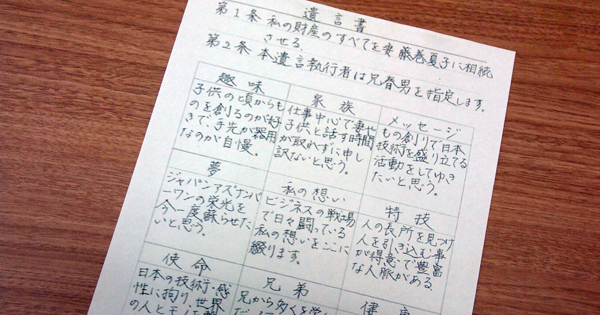 遺言書
第1条 私の財産のすべてを妻藤巻夏子に相続
させる
第2条 本遺言執行者は兄春男を指定します。
趣味
子供の頃からも
のを創るのが好
きで、手先が器用
なのが自慢。
家族
仕事中心で妻や
子供と話す時間
が取れずに申し
訳ないと思う。
メッセージ
もの創りで日本
技術を盛り立てる
活動をしてゆき
たいと思う。
夢
ジャパンアズナンバ
ーワンの栄光を
今一度蘇らせた
いと思う。
私の想い
ビジネスの戦場
で日々闘っている
私の想いをここに
綴ります。
特技
人の長所を見つけ
人を引き込む事
が得意で豊富
な人脈がある。
使命
日本の技術・感
性に拘り、世界
兄弟
兄から多くを学
健康